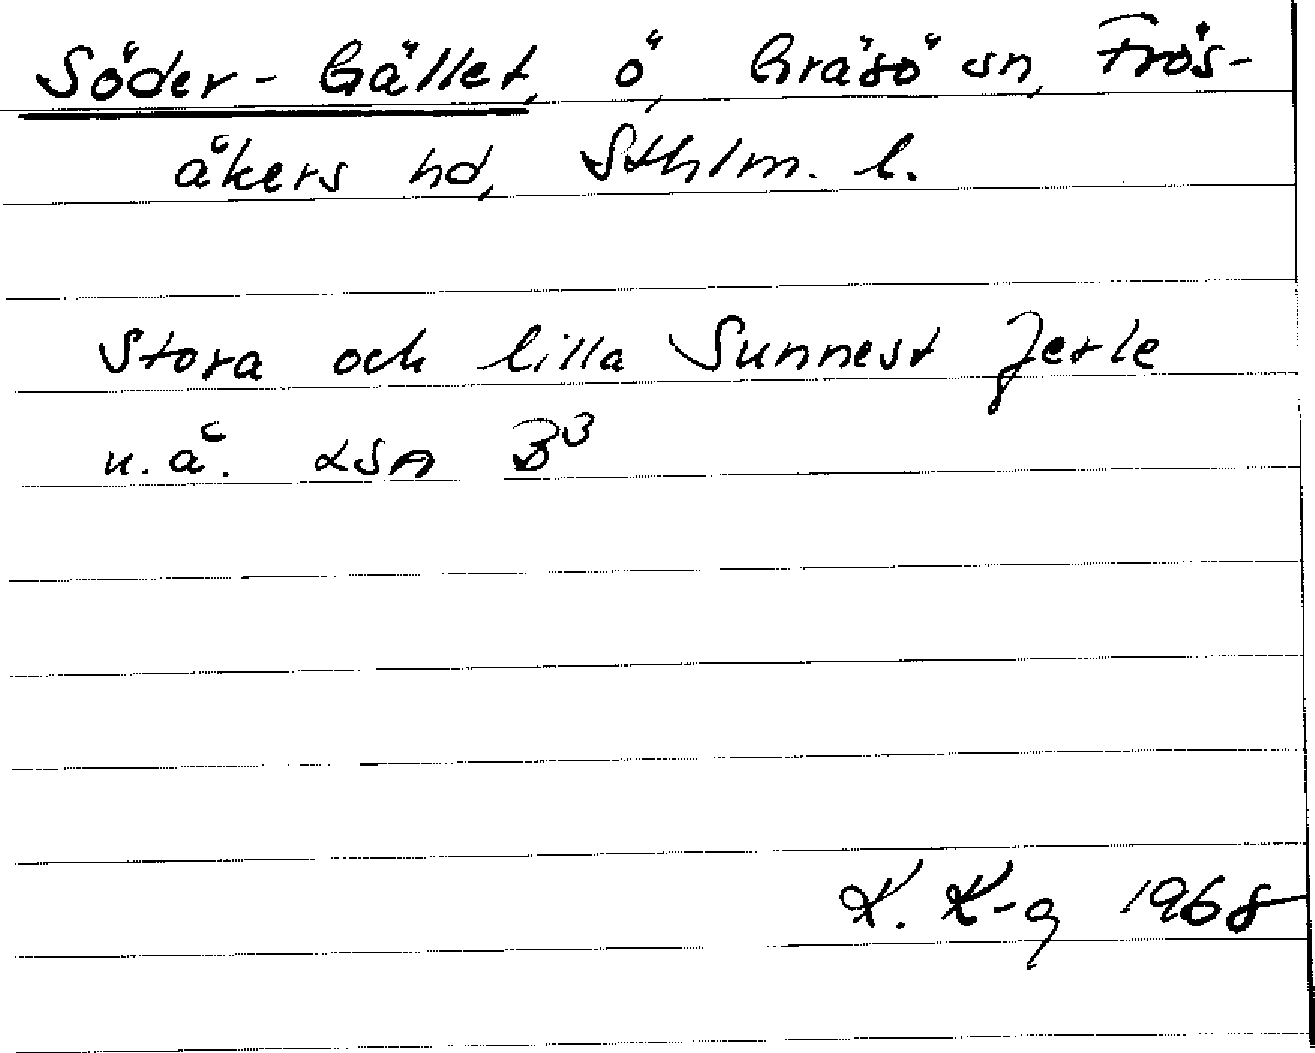 Söder-Gället, ö, Gräsö sn, Frös-
åkers hd, Sthlm. l.
Stora och lilla Sunnest Jerle
u.å. LSA B3
K. K-g 1968